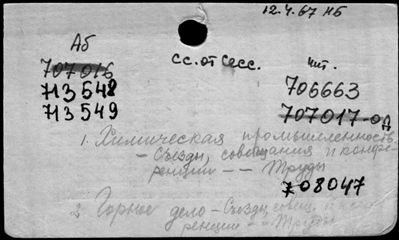 12.4.67 НБ
Аб
сс.от сесс.
чит.
707016
706663
713548
707017-од
713549
1. Химическая промышленность
- Съезды, совещания и конфе-
ренции -- Труды
708047
2. Горное дело - Съезды, совещ. и
ренции -- Труды